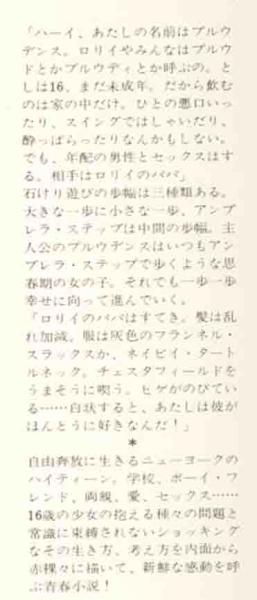 「ハーイ、あたしの名前はプルウ
デンス。ロリイやみんなはプルウ
ドとかプルウディとか呼ぶの。と
しは16、まだ未成年。だから飲む
のは家の中だけ。ひとの悪口いっ
たり、スイングではしゃいだり、
酔っぱらったりなんかもしない。
でも、年配の男性とセックスはす
る。相手はロリイのパパ」
石けり遊びの歩幅は三種類ある。
大きな一歩に小さな一歩、アンブ
レラ・ステップは中間の歩幅。主
人公のプルウデンスはいつもアン
ブレラ・ステップで歩くような思
春期の女の子。それでも一歩一歩
幸せに向って進んでいく。
「ロリイのパパはすてき。髪は乱
れ加減。服は灰色のフランネル・
スラックスか、ネイビイ・タート
ルネック。チェスタフィールドを
うまそうに喫う。ヒゲがのびてい
る……白状すると、あたしは彼が
ほんとうに好きなんだ！」
*
自由奔放に生きるニューヨークの
ハイティーン。学校、ボーイ・フ
レンド、両親、愛、セックス……
16歳の少女の抱える種々の問題と
常識に束縛されないショッキング
なその生き方、考え方を内面から
赤裸々に描いて、新鮮な感動を呼
ぶ青春小説！